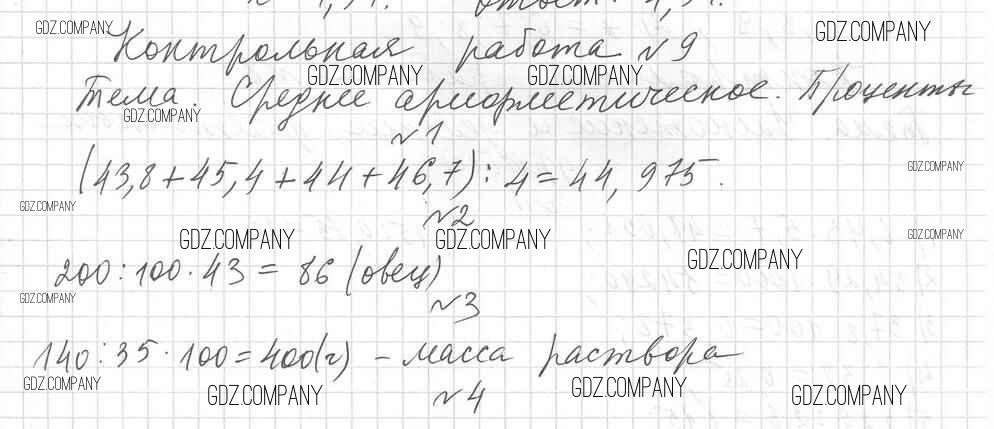 GDZ.COMPANY GDZ.COMPANY
Контрольная работа №9
GDZ.COMPANY GDZ.COMPANY
Тема. Среднее арифметическое. Проценты
GDZ.COMPANY
№1
(43,8+45,4+44+46,7):4=44,975.
GDZ.COMPANY
GDZ.COMPANY
№2
GDZ.COMPANY GDZ.COMPANY GDZ.COMPANY
GDZ.COMPANY
200:100·43=86 (овец)
GDZ.COMPANY
№3
140:35·100=400(г) – масса раствора
GDZ.COMPANY GDZ.COMPANY GDZ.COMPANY GDZ.COMPANY
№4